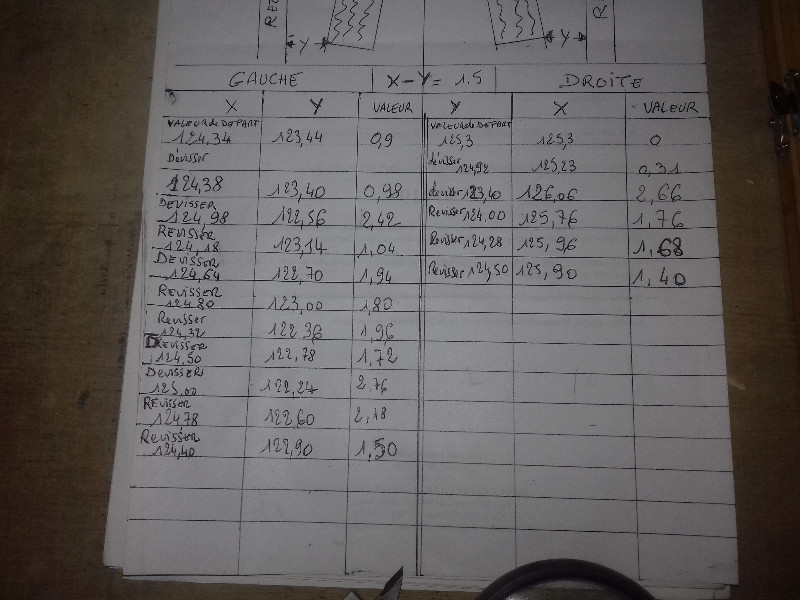 RE
R
Y
Y
GAUCHE X-Y= 1.5 DROITE
X Y VALEUR Y X VALEUR
VALEUR de DEPART VALEUR de DEPART
124,34 123,44 0,9 125,3 125,3 0
Dévisser dévisser
124,92 125,23 0,31
124,38 123,40 0,98 dévisser 123,40 126,06 2,66
DEVISSER
124,98 122,56 2,42 Revisser 124,00 125,76 1,76
REVISSER
124,18 123,14 1,04 Revisser 124,28 125,96 1,68
DEVISSER
124,64 122,70 1,94 Revisser 124,50 125,90 1,40
REVISSER
124,80 123,00 1,80
Revisser
124,32 122,36 1,96
DREVISSER
124,50 122,78 1,72
DEVISSER
125,00 122,24 2,76
REVISSER
124,78 122,60 2,18
REVISSER
124,40 122,90 1,50